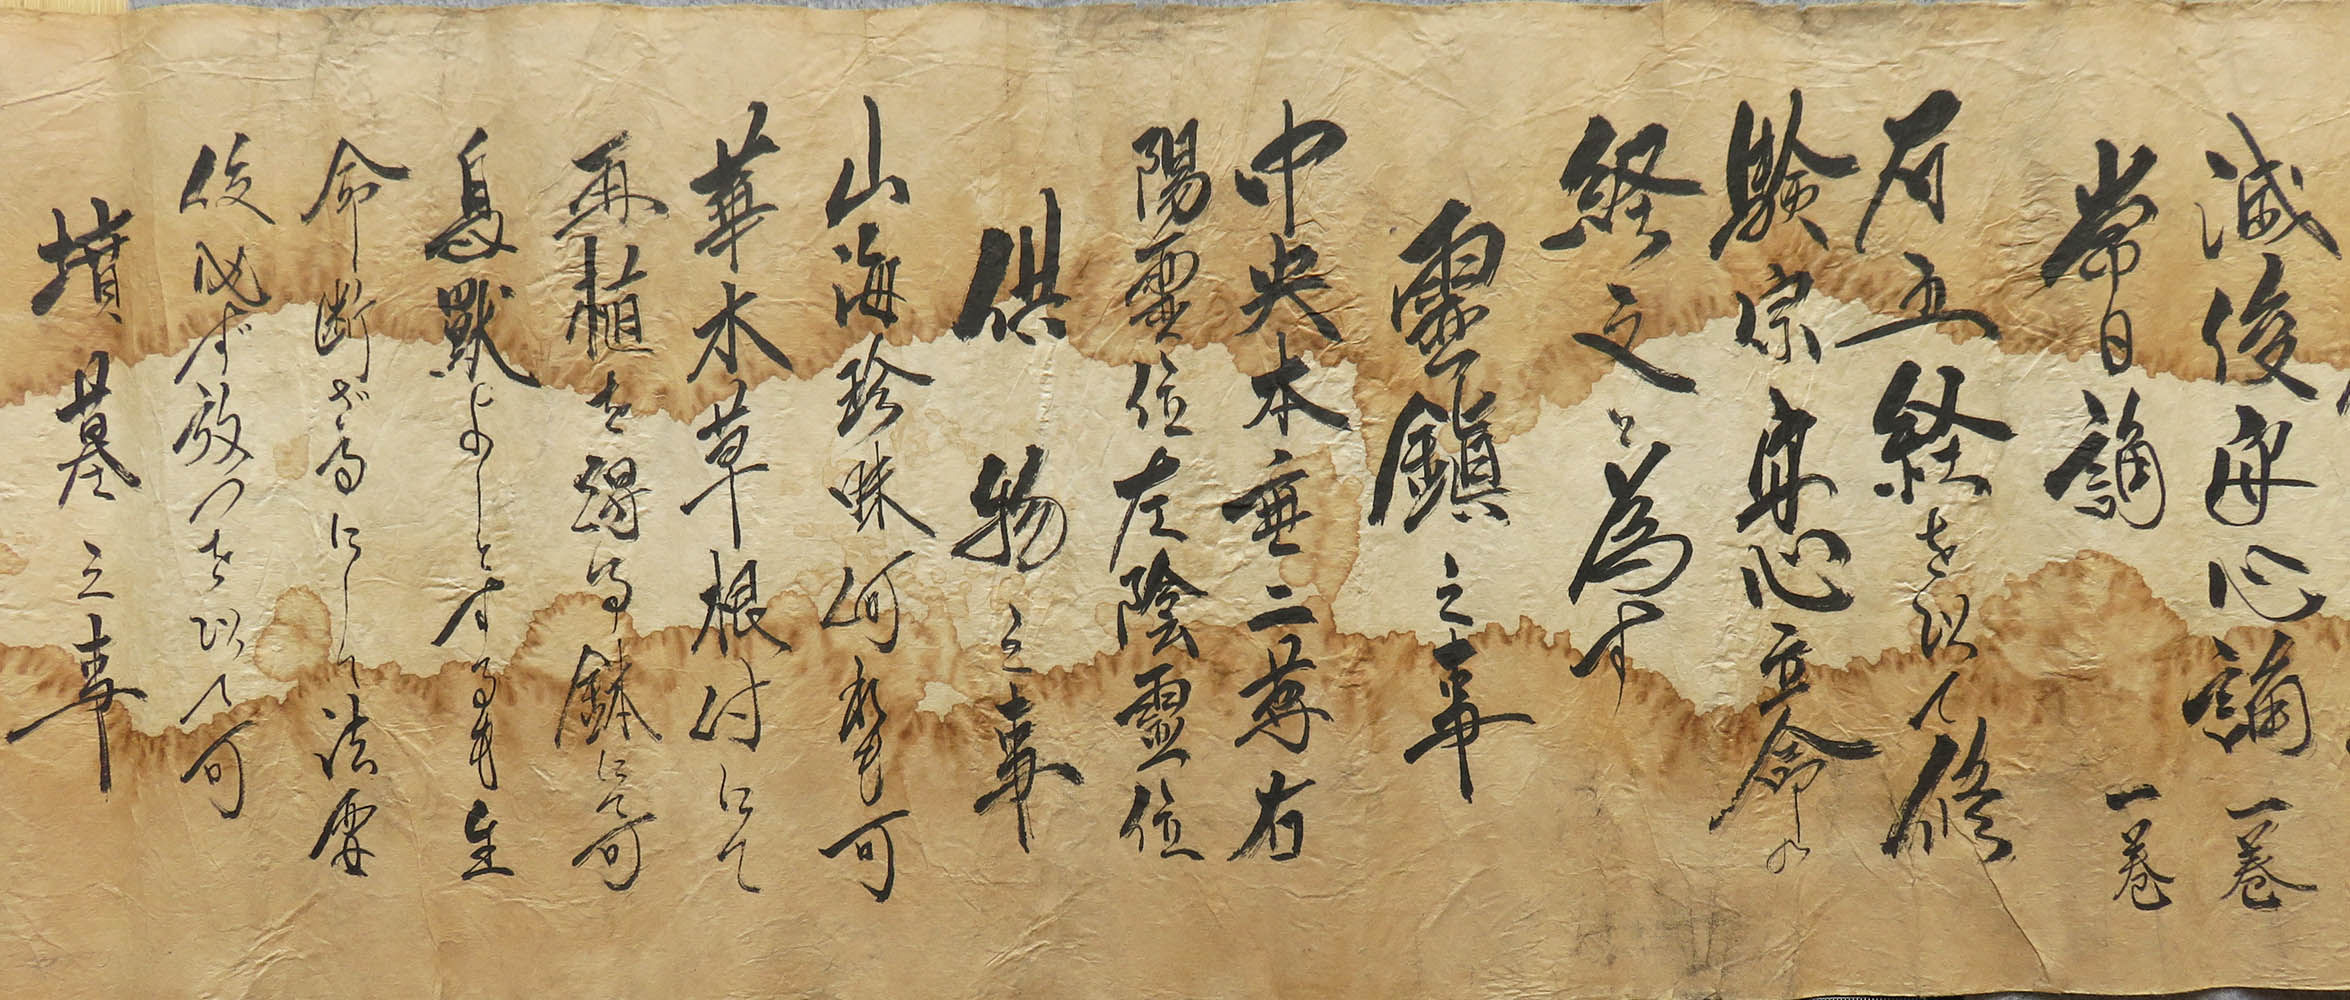 滅後安心論一巻
常日論 一巻
右五経を以て修
験宗安心立命の
経文と為す
霊鎮之事
中央本垂二尊右
陽霊位左陰霊位
供物之事
山海珍味何聖も可
華木草根付にて
再植を得る鉢にて可
鳥獣よしとするも生
命断ざるにして法要
後必ず放つを以て可
墳墓之事